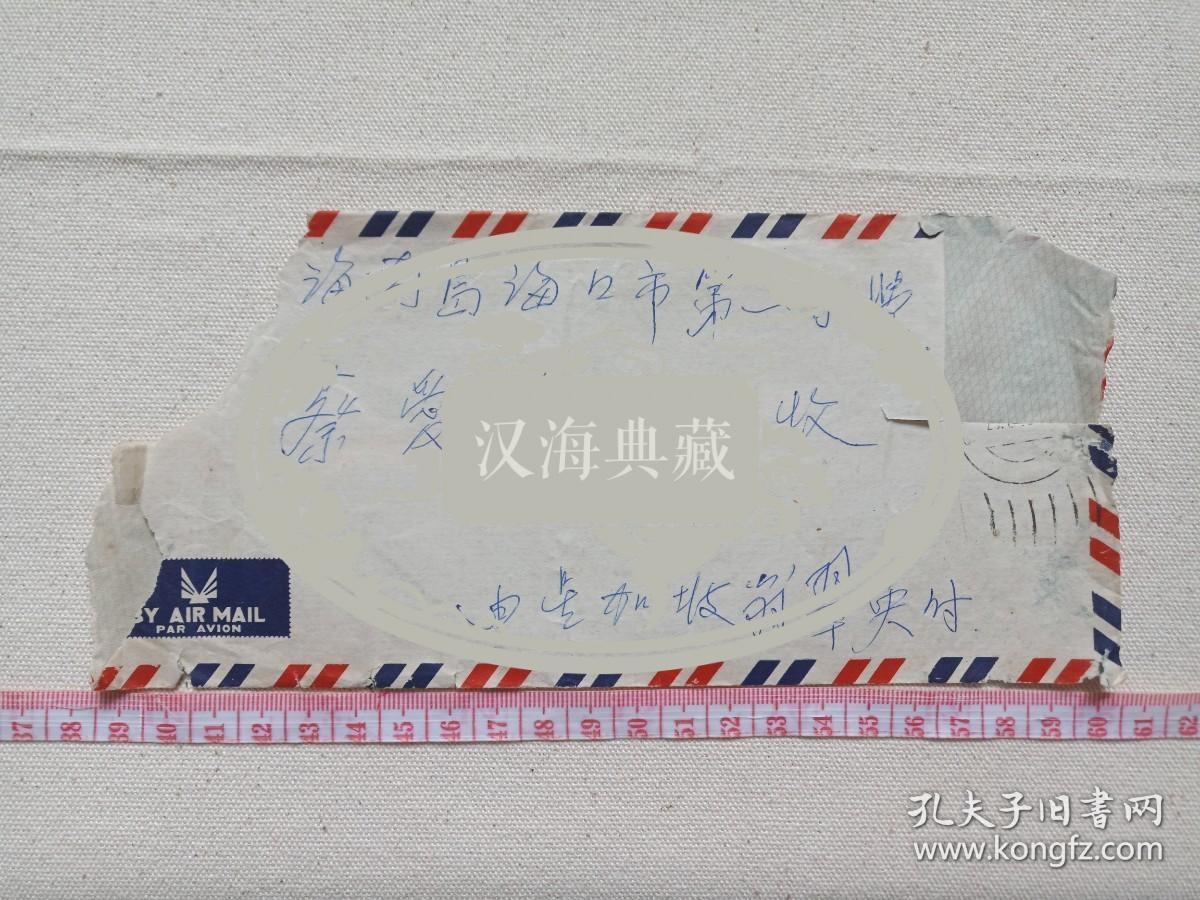 海南岛海口市第一
蔡爱 收
汉海典藏
由星加坡 央付
BY AIR MAIL
PAR AVION
37 38 39 40 41 42 43 44 45 46 47 48 49 50 51 52 53 54 55 56 57 58 59 60 61 62
孔夫子旧书网
www.kongfz.com